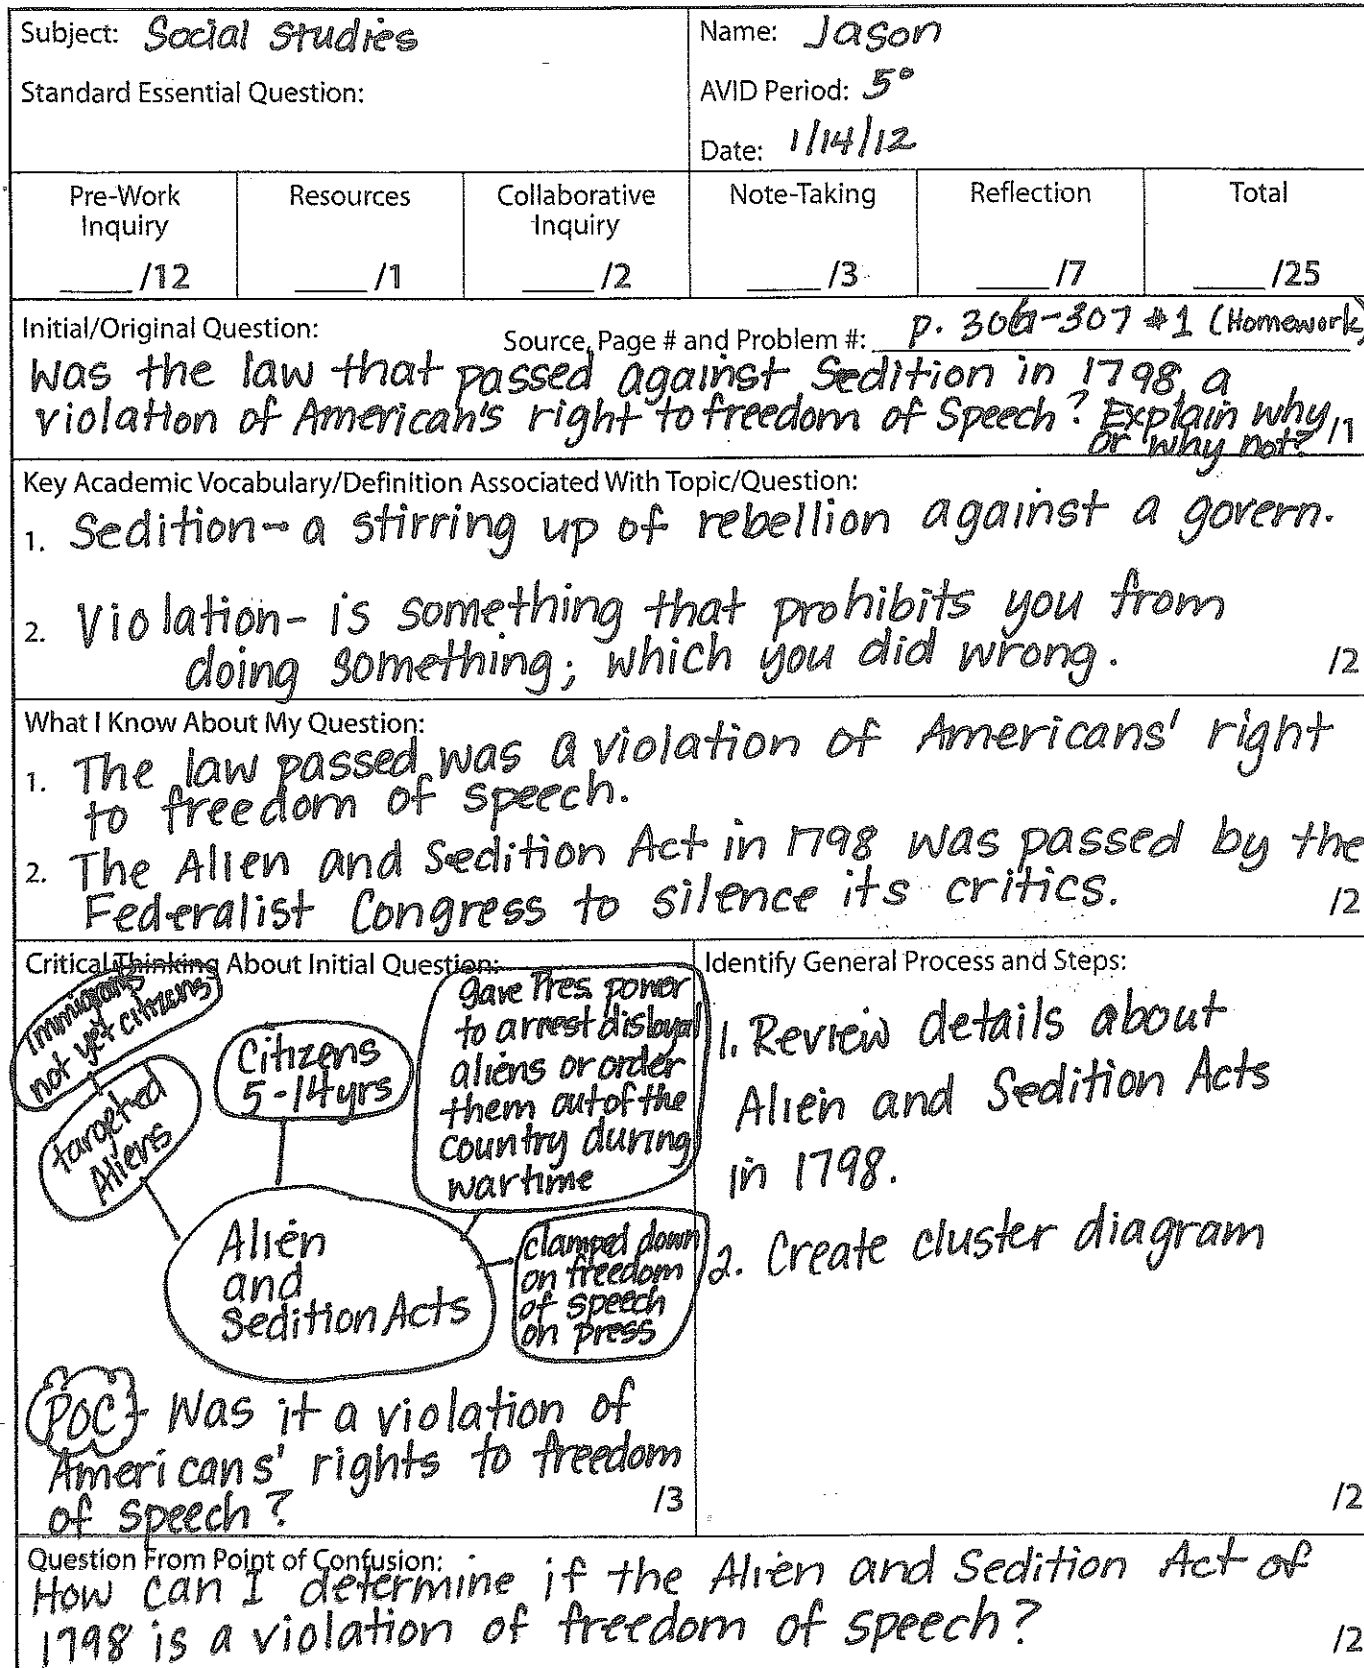 Subject: Social Studies
Name: Jason
Standard Essential Question:
AVID Period: 5°
Date: 1/14/12
Pre-Work
Inquiry
____ /12
Resources
____ /1
Collaborative
Inquiry
____ /2
Note-Taking
____ /3
Reflection
____ /7
Total
____ /25
Initial/Original Question:
Source, Page # and Problem #: p. 306-307 #1 (Homework)
Was the law that passed against Sedition in 1798 a
violation of American's right to freedom of Speech? Explain why
or why not? /1
Key Academic Vocabulary/Definition Associated With Topic/Question:
1. Sedition- a stirring up of rebellion against a govern.
2. Violation- is something that prohibits you from
doing something; which you did wrong. /2
What I Know About My Question:
1. The law passed was a violation of Americans' right
to freedom of speech.
2. The Alien and Sedition Act in 1798 was passed by the
Federalist Congress to silence its critics. /2
Critical Thinking About Initial Question:
Immigrants
not yet citizens
targeted
Aliens
Citizens
5-14yrs
gave Pres. power
to arrest disloyal
aliens or order
them out of the
country during
wartime
Alien
and
Sedition Acts
clamped down
on freedom
of speech
on press
POC - Was it a violation of
Americans' rights to freedom
of speech? /3
Identify General Process and Steps:
1. Review details about
Alien and Sedition Acts
in 1798.
2. Create cluster diagram
/2
Question From Point of Confusion:
How can I determine if the Alien and Sedition Act of
1798 is a violation of freedom of speech? /2